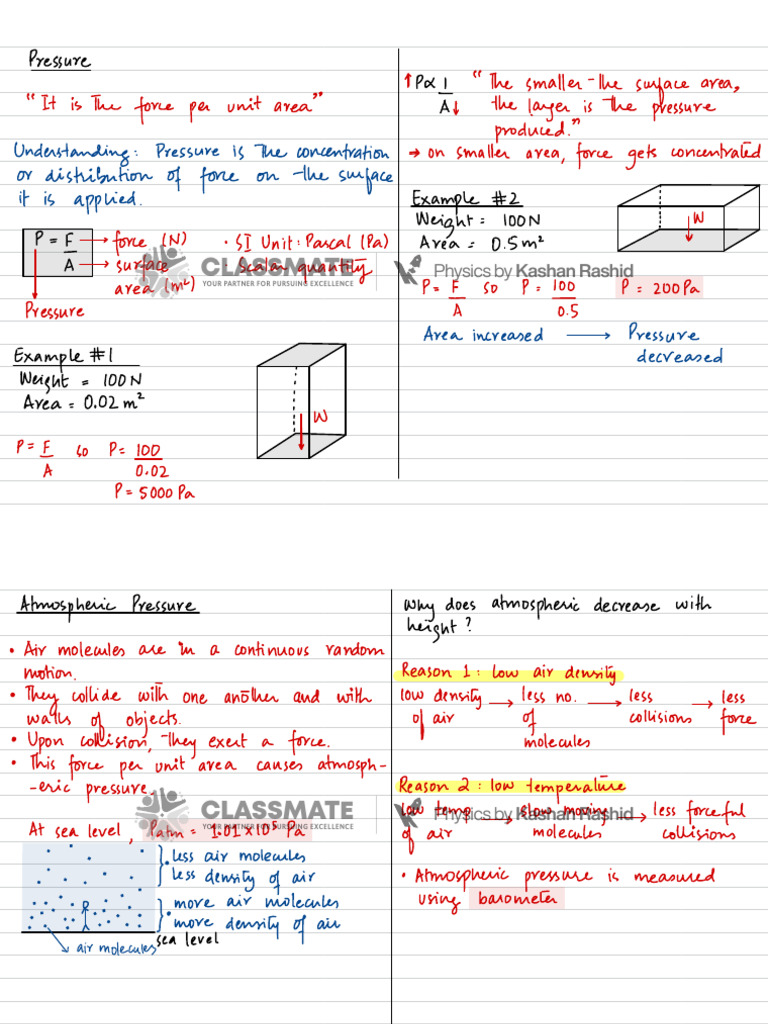 Pressure
"It is the force per unit area"
Understanding: Pressure is the concentration
or distribution of force on the surface
it is applied.
P = F → force (N)
A → surface
area (m²)
Pressure
• SI Unit: Pascal (Pa)
• Scalar quantity
CLASSMATE
YOUR PARTNER FOR PURSUING EXCELLENCE
Example #1
Weight = 100N
Area = 0.02 m²
W
P = F so P = 100
A 0.02
P = 5000 Pa
↑P∝ 1 "The smaller the surface area,
A↓ the larger is the pressure
produced."
→ on smaller area, force gets concentrated
Example #2
Weight = 100N
Area = 0.5m²
W
Physics by Kashan Rashid
P = F so P = 100 P = 200 Pa
A 0.5
Area increased → Pressure
decreased
Atmospheric Pressure
• Air molecules are in a continuous random
motion.
• They collide with one another and with
walls of objects.
• Upon collision, they exert a force.
• This force per unit area causes atmosph-
-eric pressure.
CLASSMATE
YOUR PARTNER FOR PURSUING EXCELLENCE
At sea level, Patm = 1.01 × 10⁵ Pa
• less air molecules
less density of air
• more air molecules
more density of air
sea level
air molecules
Why does atmospheric decrease with
height?
Reason 1: low air density
low density → less no. → less → less
of air of collisions force
molecules
Reason 2: low temperature
Physics by Kashan Rashid
low temp → slow moving → less forceful
of air molecules collisions
• Atmospheric pressure is measured
using barometer